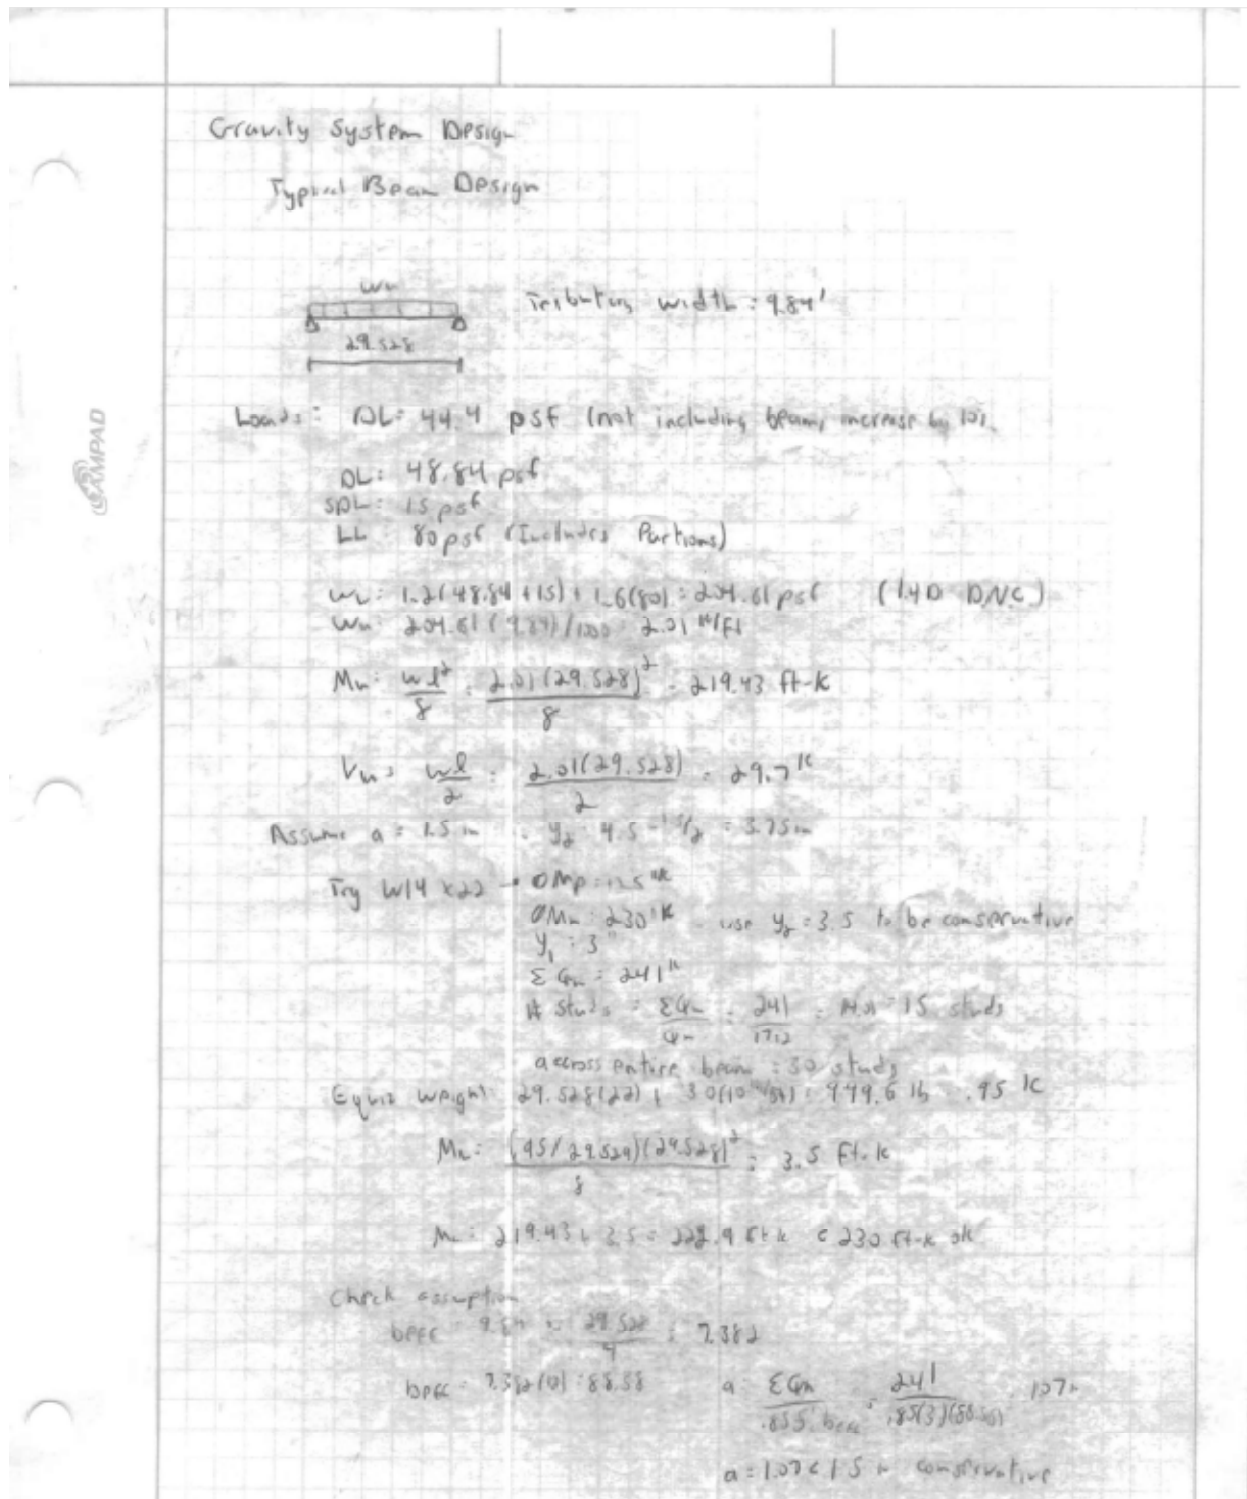 Gravity System Design
Typical Beam Design
Wu
Tributary width = 9.84'
29.528
CAMPAD
Loads: DL = 44.4 psf (not including beam, increase by 10%
DL = 48.84 psf
SDL = 15 psf
LL = 80 psf (Includes Partions)
wu = 1.2(48.84 + 15) + 1.6(80) = 204.61 psf (1.4D D.N.C)
wu = 204.61(9.84)/1000 = 2.01 k/ft
Mu = wl²/8 = 2.01(29.528)²/8 = 219.43 ft-k
Vu = wl/2 = 2.01(29.528)/2 = 29.7 k
Assume a = 1.5 in y2 = 4.5 - 1.5/2 = 3.75 in
Try W14 x22 → ØMp = 125 'k
ØMn = 230 'k - use y2 = 3.5 to be conservative
y1 = 3"
ΣQn = 241 k
# Studs = ΣQn/Qn = 241/17.2 = 14.01 = 15 studs
across entire beam = 30 studs
Equiv weight = 29.528(22) + 30(10 ) = 949.6 lb = .95 k
Mu = (.95/29.528)(29.528)²/8 = 3.5 ft-k
Mu = 219.43 + 3.5 = 222.9 ft-k < 230 ft-k ok
Check assumption
beff = 9.84 29.528/4 = 7.382
beff = 7.382(12) = 88.58 a = ΣQn/.85f'c beff = 241/.85(3)(88.58) = 1.07 in
a = 1.07 < 1.5 in conservative